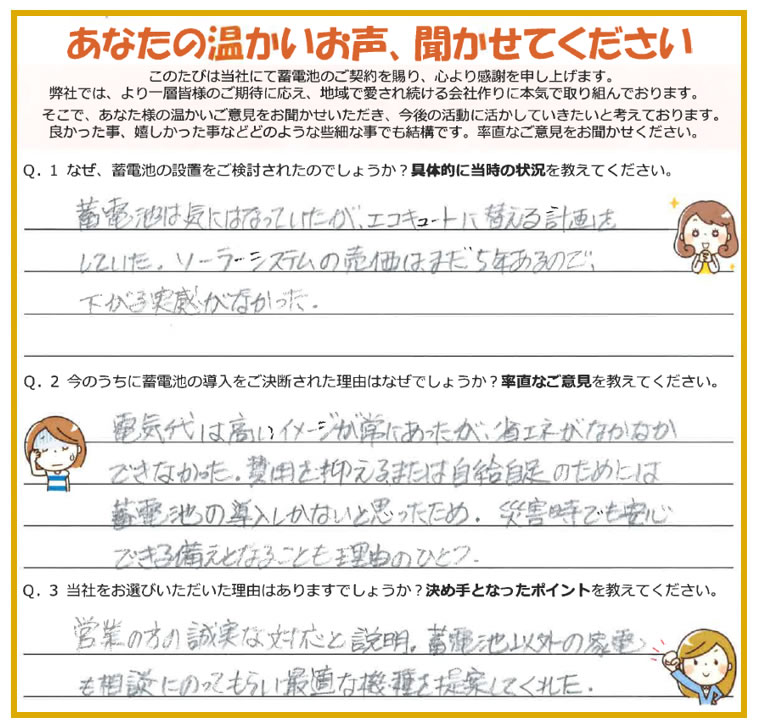 あなたの温かいお声、聞かせてください
このたびは当社にて蓄電池のご契約を賜り、心より感謝を申し上げます。
弊社では、より一層皆様のご期待に応え、地域で愛され続ける会社作りに本気で取り組んでおります。
そこで、あなた様の温かいご意見をお聞かせいただき、今後の活動に活かしていきたいと考えております。
良かった事、嬉しかった事などどのような些細な事でも結構です。率直なご意見をお聞かせください。
Q．1 なぜ、蓄電池の設置をご検討されたのでしょうか？具体的に当時の状況を教えてください。
蓄電池は気にはなっていたが、エコキュートに替える計画を
していた。ソーラーシステムの売価はまだ5年あるので、
下がる実感がなかった。
Q．2 今のうちに蓄電池の導入をご決断された理由はなぜでしょうか？率直なご意見を教えてください。
電気代は高いイメージが常にあったが、省エネがなかなか
できなかった。費用を抑えるまたは自給自足のためには
蓄電池の導入しかないと思ったため。災害時でも安心
できる備えとなることも理由のひとつ。
Q．3 当社をお選びいただいた理由はありますでしょうか？決め手となったポイントを教えてください。
営業の方の誠実な対応と説明。蓄電池以外の家電
も相談にのってもらい最適な機種を提案してくれた。